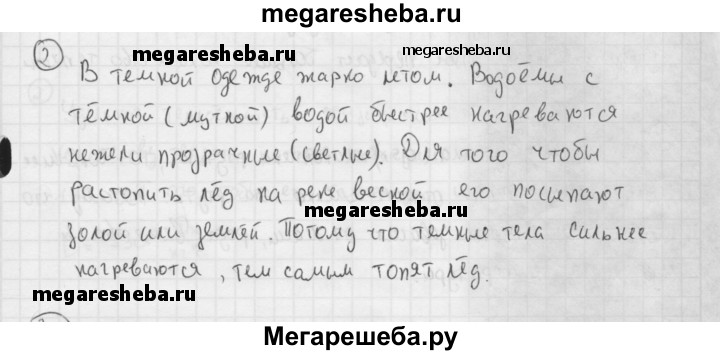 megaresheba.ru
2
megaresheba.ru
megaresheba.ru
В темной одежде жарко летом. Водоёмы с
тёмной (мутной) водой быстрее нагреваются
нежели прозрачные (светлые). Для того чтобы
растопить лёд на реке весной его посыпают
megaresheba.ru
золой или землёй. Потому что темные тела сильнее
нагреваются, тем самым топят лёд.
megaresheba.ru
Мегарешеба.ру